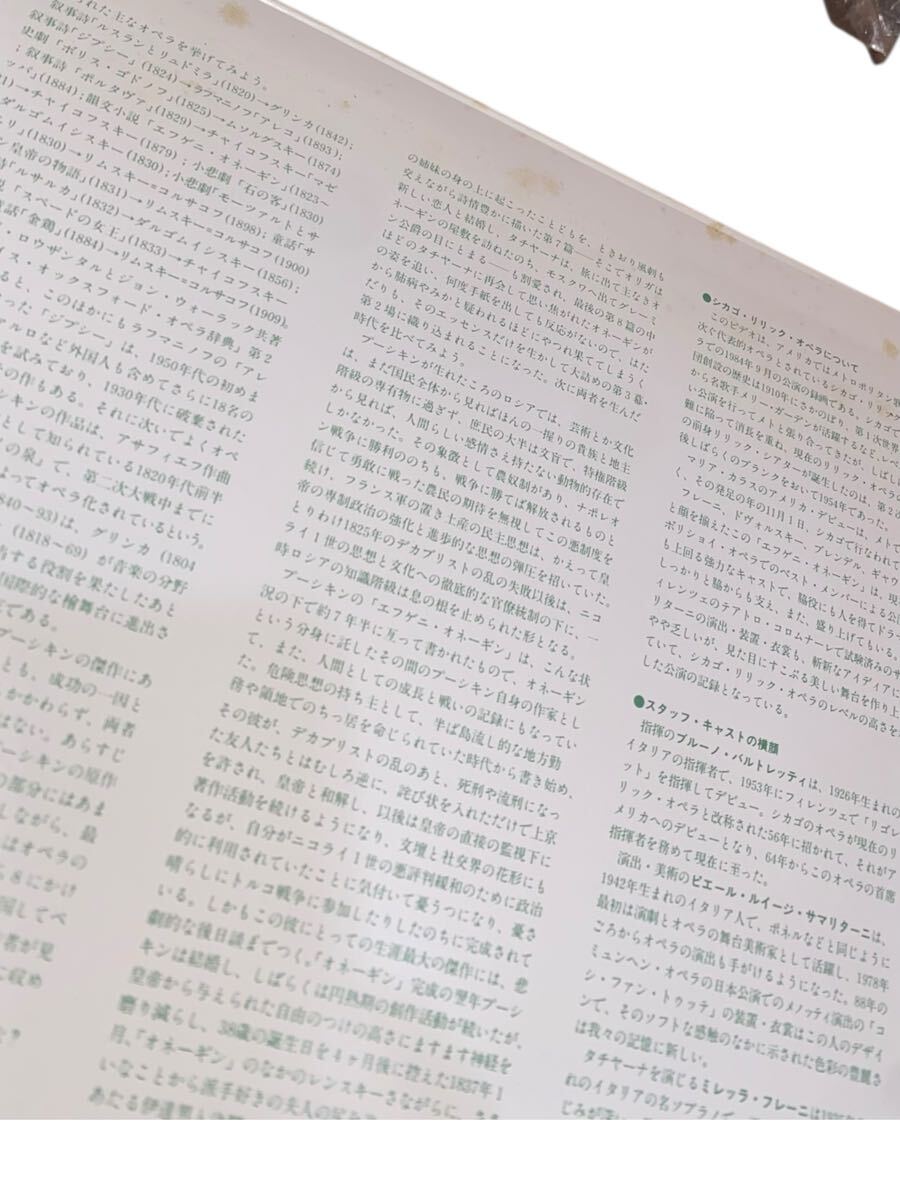 れた主なオペラを挙げてみよう。
叙事詩「ルスランとリュドミラ」(1820)→グリンカ(1842);
叙事詩「ジプシー」(1824)→ラフマニノフ「アレコ」(1893);
史劇「ボリス・ゴドノフ」(1825)→ムソルグスキー(1874)
;叙事詩「ポルタヴァ」(1829)→チャイコフスキー「マゼ
ッパ」(1884);韻文小説「エフゲニ・オネーギン」(1823~
→チャイコフスキー(1879);小悲劇「石の客」(1830)
ダルゴムイシスキー(1830);小悲劇「モーツァルトとサ
(1830)→リムスキー=コルサコフ(1898);童話「サ
ン皇帝の物語」(1831)→リムスキー=コルサコフ(1900)
「ルサルカ」(1832)→ダルゴムイシスキー(1856);
「スペードの女王」(1833)→チャイコフスキー
童話「金鶏」(1884)→リムスキー=コルサコフ(1909)。
・ロウザンタルとジョン・ウォーラック共著
ス・オックスフォード・オペラ辞典」第2
と、このほかにもラフマニノフの「アレ
った「ジプシー」は、1950年代の初めま
アルロなど外国人も含めてさらに18名の
を試みており、1930年代に破棄された
の作もある。それに次いでよくオペ
キンの作品は、アサフィエフ作曲
として知られている1820年代前半
の泉」で、第二次大戦中までに
よってオペラ化されているという。
840~93)は、グリンカ(1804
(1818~69)が音楽の分野
当する役割を果たしたあと
国際的な檜舞台に進出さ
である。
プーシキンの傑作にあ
とも、成功の一因と
かかわらず、両者
はない。あらすじ
プーシキンの原作
の部分にはあま
しながら、最
はオペラの
ら8にかけ
国してペ
者が見
に収め
の姉妹の身の上に起こったことどもを、ときおり風刺も
交えながら詩情豊かに描いた第7篇――そこでオリガは
新しい恋人と結婚し、タチヤーナは、旅に出て主なきオ
ネーギンの屋敷を訪ねたのち、モスクワへ出てグレーミ
ン公爵の目にとまる――も割愛され、最後の第8篇の中
ほどのタチヤーナに再会して思い焦がれたオネーギンが
の姿を追い、何度手紙を出しても反応がないので、はた
から肺病やみかと疑われるほどにやつれ果ててしまうく
だりも、そのエッセンスだけを生かして大詰めの第3幕・
第2場に織り込まれることになった。次に両者を生んだ
時代を比べてみよう。
プーシキンが生れたころのロシアでは、芸術とか文化
は、まだ国民全体から見ればほんの一握りの貴族と地主
階級の専有物に過ぎず、庶民の大半は文盲で、特権階級
から見れば、人間らしい感情さえ持たない動物的存在で
しかなかった。その象徴として農奴制があり、ナポレオ
ン戦争に勝利ののちも、戦争に勝てば解放されるものと
信じて勇敢に戦った農民の期待を無視してこの悪制度を
続け、フランス軍の置き土産の民主思想は、かえって皇
帝の専制政治の強化と進歩的な思想の弾圧を招いていた。
とりわけ1825年のデカブリストの乱の失敗以後は、ニコ
ライ1世の思想と文化への徹底的な官僚統制の下に、一
時ロシアの知識階級は息の根を止められた形となる。
プーシキンの「エフゲニ・オネーギン」は、こんな状
況の下で約7年半に亙って書かれたもので、オネーギン
という分身に託したその間のプーシキン自身の作家とし
て、また、人間としての成長と戦いの記録にもなってい
た。危険思想の持ち主として、半ば島流し的な地方勤
務や領地でのちっ居を命じられていた時代から書き始め、
その彼が、デカブリストの乱のあと、死刑や流刑にな
った友人たちとはむしろ逆に、詫び状を入れただけで上京
を許され、皇帝と和解し、以後は皇帝の直接の監視下に
著作活動を続けるようになり、文壇と社交界の花形にも
なるが、自分がニコライ1世の悪評判緩和のために政治
的に利用されていたことに気付いて憂うつになり、憂さ
晴らしにトルコ戦争に参加したりしたのちに完成されて
いる。しかもこの彼にとっての生涯最大の傑作には、悲
劇的な後日談までつく。「オネーギン」完成の翌年プーシ
キンは結婚し、しばらくは円熟期の創作活動が続いたが、
皇帝から与えられた自由のつけの高さにますます神経を
磨り減らし、38歳の誕生日を4ヶ月後に控えた1837年1
月、「オネーギン」のなかのレンスキーさながらに、
いなことから派手好きの夫人の
あたる伊達男との
●シカゴ・リリック・オペラについて
このビデオは、アメリカではメトロポリタン歌
次ぐ代表的オペラとされているシカゴ・リリック
ラでの1984年9月の公演の録画である。シカゴで
団創設の歴史は1910年にさかのぼり、第1次世界
から名歌手メリー・ガーデンが活躍するなど、レベ
い公演を行ってメトと張り合ってきたが、しばし
難に陥って消長を重ね、現在のリリック・オペラの
の前身リリック・シアターが誕生したのは、第2次
後しばらくのブランクをおいて1954年であった。
マリア・カラスのアメリカ・デビューは、メトで
く、その発足の年の11月1日、シカゴで行なわれて
フレーニ、ドヴォルスキー、ブレンデル、ギャウ
と顔を揃えたこの「エフゲニ・オネーギン」は、現
ボリショイ・オペラでのベスト・メンバーによる公
も上回る強力なキャストで、脇役にも人を得てドラ
しっかりと脇からも支え、また、盛り上げてもいる。
ィレンツェのテアトロ・コロムナーレで試験済みのサ
リターニの演出・装置・衣裳も、斬新なアイディアに
やや乏しいが、見た目にすこぶる美しい舞台を作り上
ていて、シカゴ・リリック・オペラのレベルの高さを
した公演の記録となっている。
●スタッフ・キャストの横顔
指揮のブルーノ・バルトレッティは、1926年生まれの
イタリアの指揮者で、1953年にフィレンツェで「リゴレ
ット」を指揮してデビュー。シカゴのオペラが現在のリ
リック・オペラと改称された56年に招かれて、それがア
メリカへのデビューとなり、64年からこのオペラの首席
指揮者を務めて現在に至った。
演出・美術のピエール・ルイージ・サマリターニは、
1942年生まれのイタリア人で、ポネルなどと同じように
最初は演劇とオペラの舞台美術家として活躍し、1978年
ころからオペラの演出も手がけるようになった。88年の
ミュンヘン・オペラの日本公演でのメノッティ演出の「コ
シ・ファン・トゥッテ」の装置・衣裳はこの人のデザイ
ンで、そのソフトな感触のなかに示された色彩の豊麗さ
は我々の記憶に新しい。
タチヤーナを演じるミレッラ・フレーニは
れのイタリアの名ソプラノで